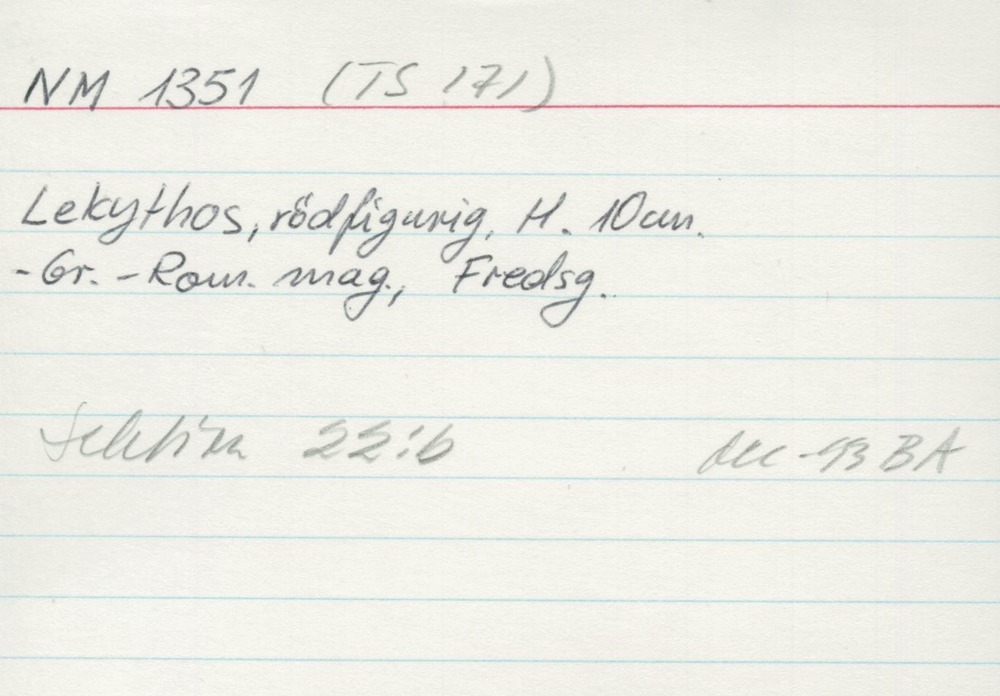 NM 1351 (TS 171)
Lekythos, rödfigurig, H. 10cm.
-Gr.-Rom. mag., Fredsg.
Sektion 22:6 dec -93 BA